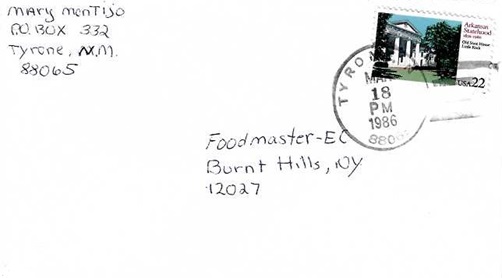 Mary MonTijo
P.O. BOX 332
Tyrone, N.M.
88065
Arkansas
Statehood
1836-1986
Old State House
Little Rock
USA 22
TYRON
MAR
18
PM
1986
8806
Foodmaster-EC
Burnt Hills, NY
12027